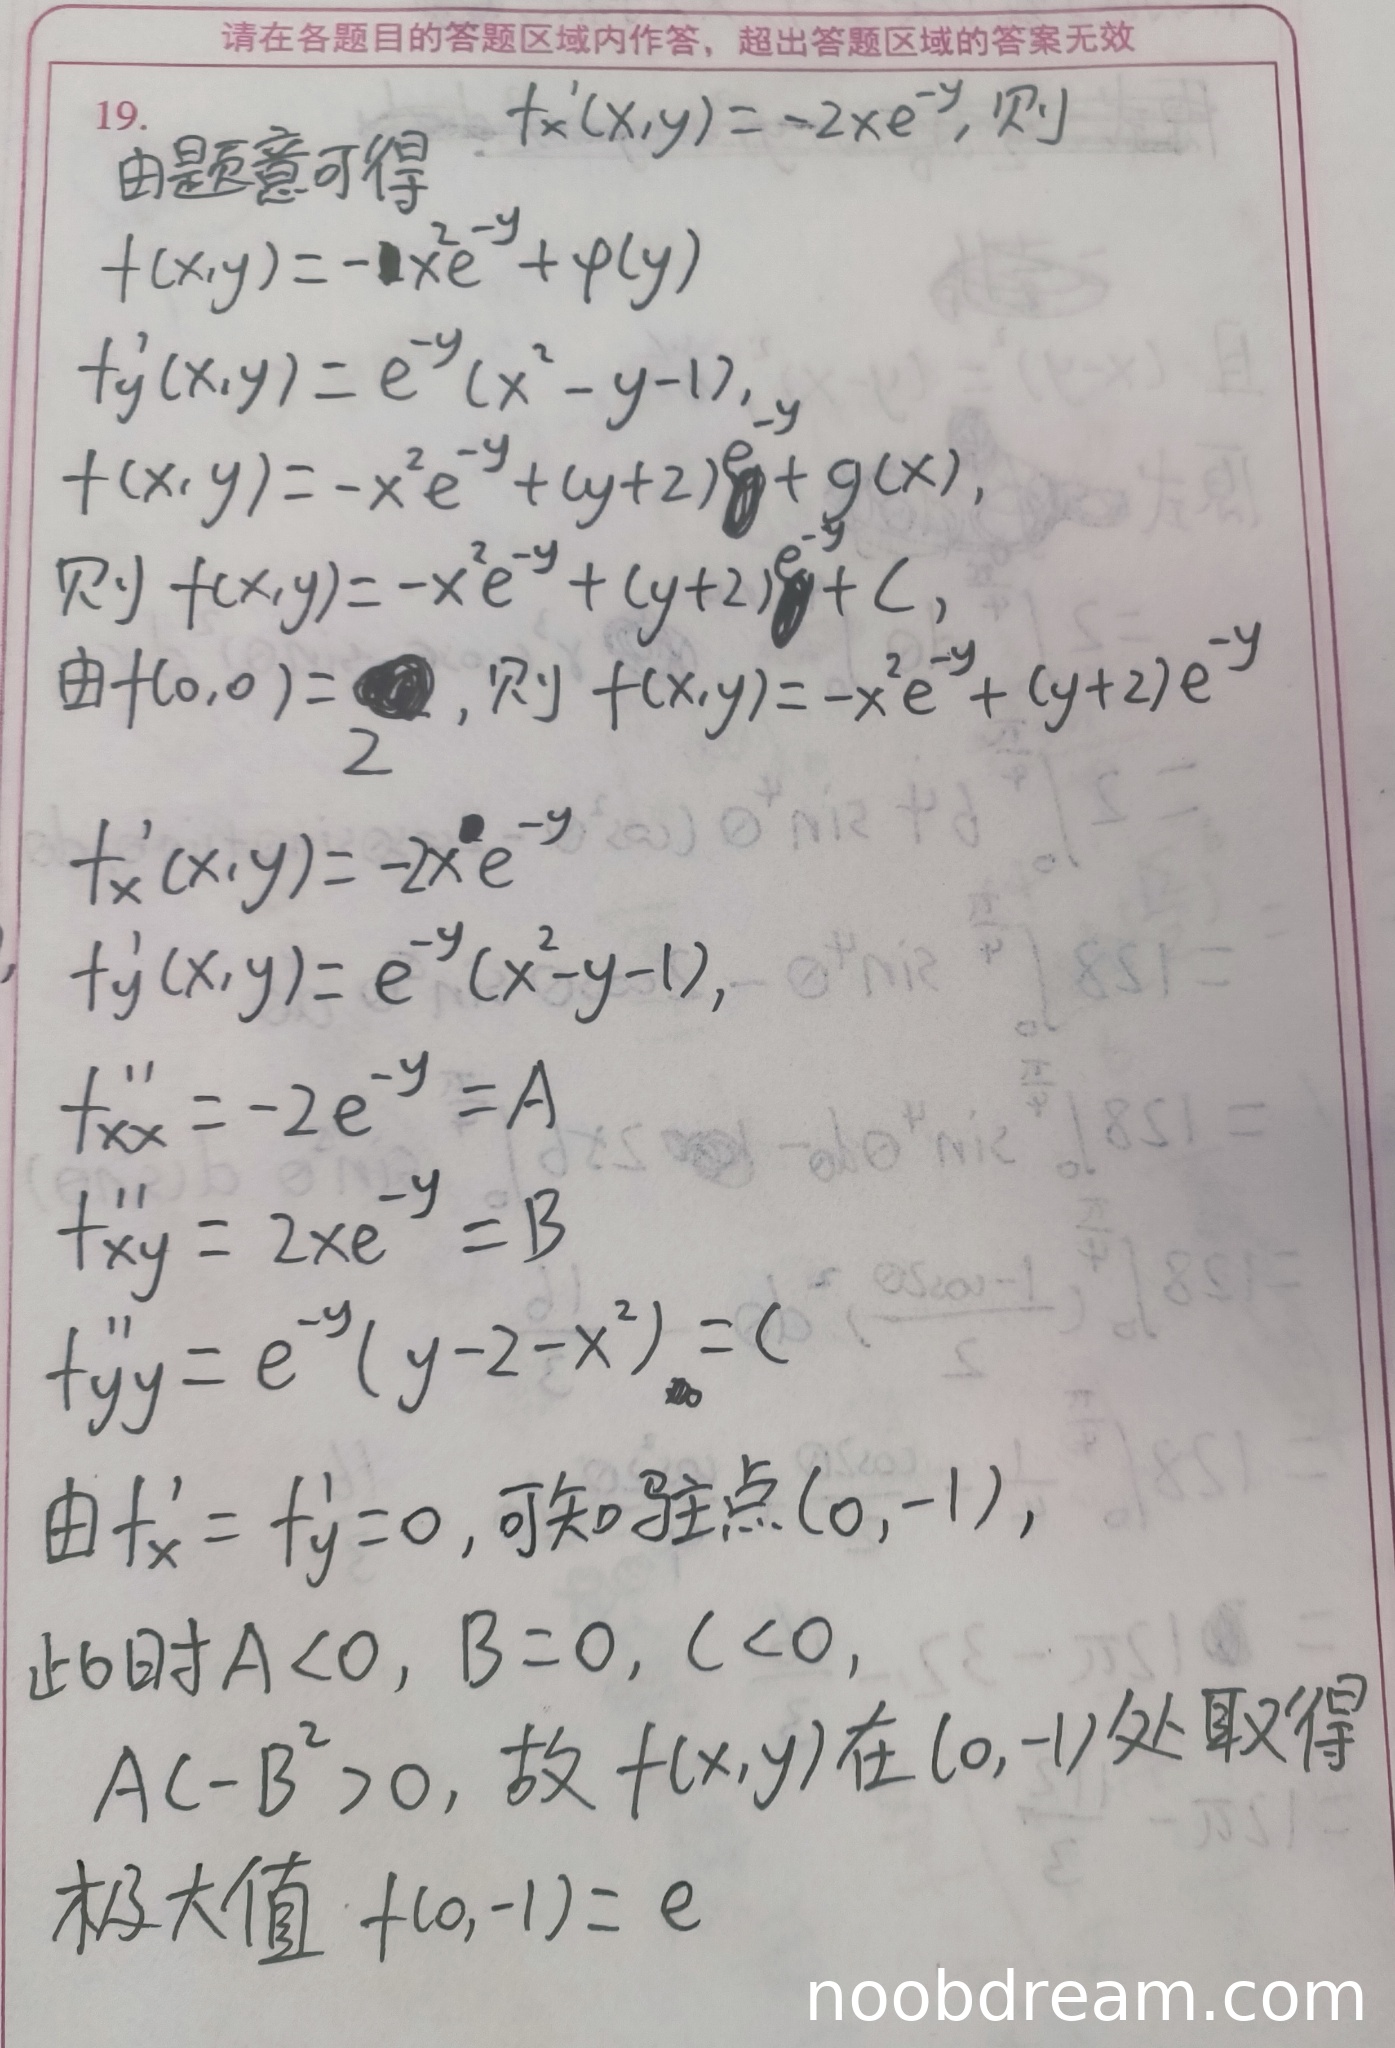 请在各题目的答题区域内作答，超出答题区域的答案无效
19.
由题意可得 f'x(x,y)=-2xe^{-y}, 则
f(x,y)=-x²e^{-y}+φ(y)
f'y(x,y)=e^{-y}(x²-y-1),
f(x,y)=-x²e^{-y}+(y+2)e^{-y}+g(x),
则 f(x,y)=-x²e^{-y}+(y+2)e^{-y}+C,
由f(0,0)=2, 则 f(x,y)=-x²e^{-y}+(y+2)e^{-y}
f'x(x,y)=-2xe^{-y}
f'y(x,y)=e^{-y}(x²-y-1),
f''xx=-2e^{-y}=A
f''xy=2xe^{-y}=B
f''yy=e^{-y}(y-2-x²)=C
由f'x=f'y=0, 可知驻点(0,-1),
此时A<0, B=0, C<0,
AC-B²>0, 故f(x,y)在(0,-1)处取得
极大值 f(0,-1)=e
noobdream.com